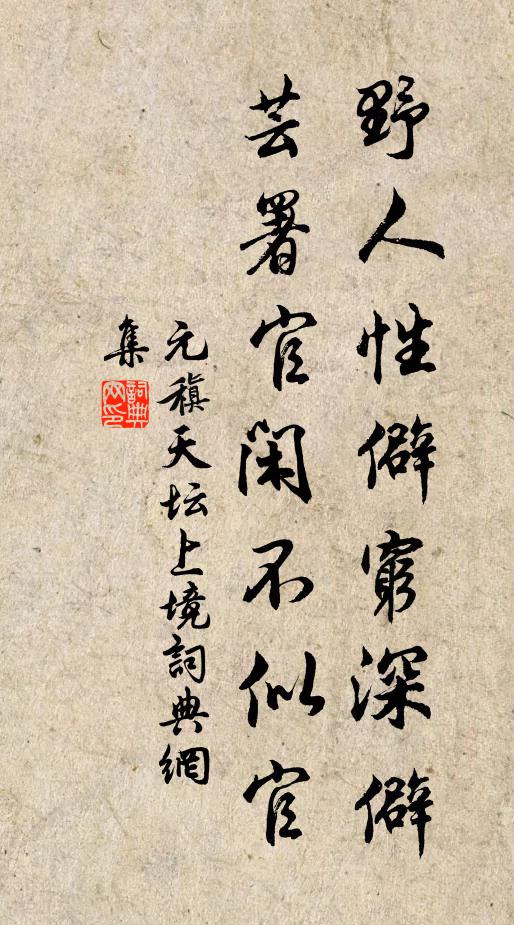 野人性僻穷深僻
芸署官闲不似官
元稹天坛上境詞典網
集
詞典網印